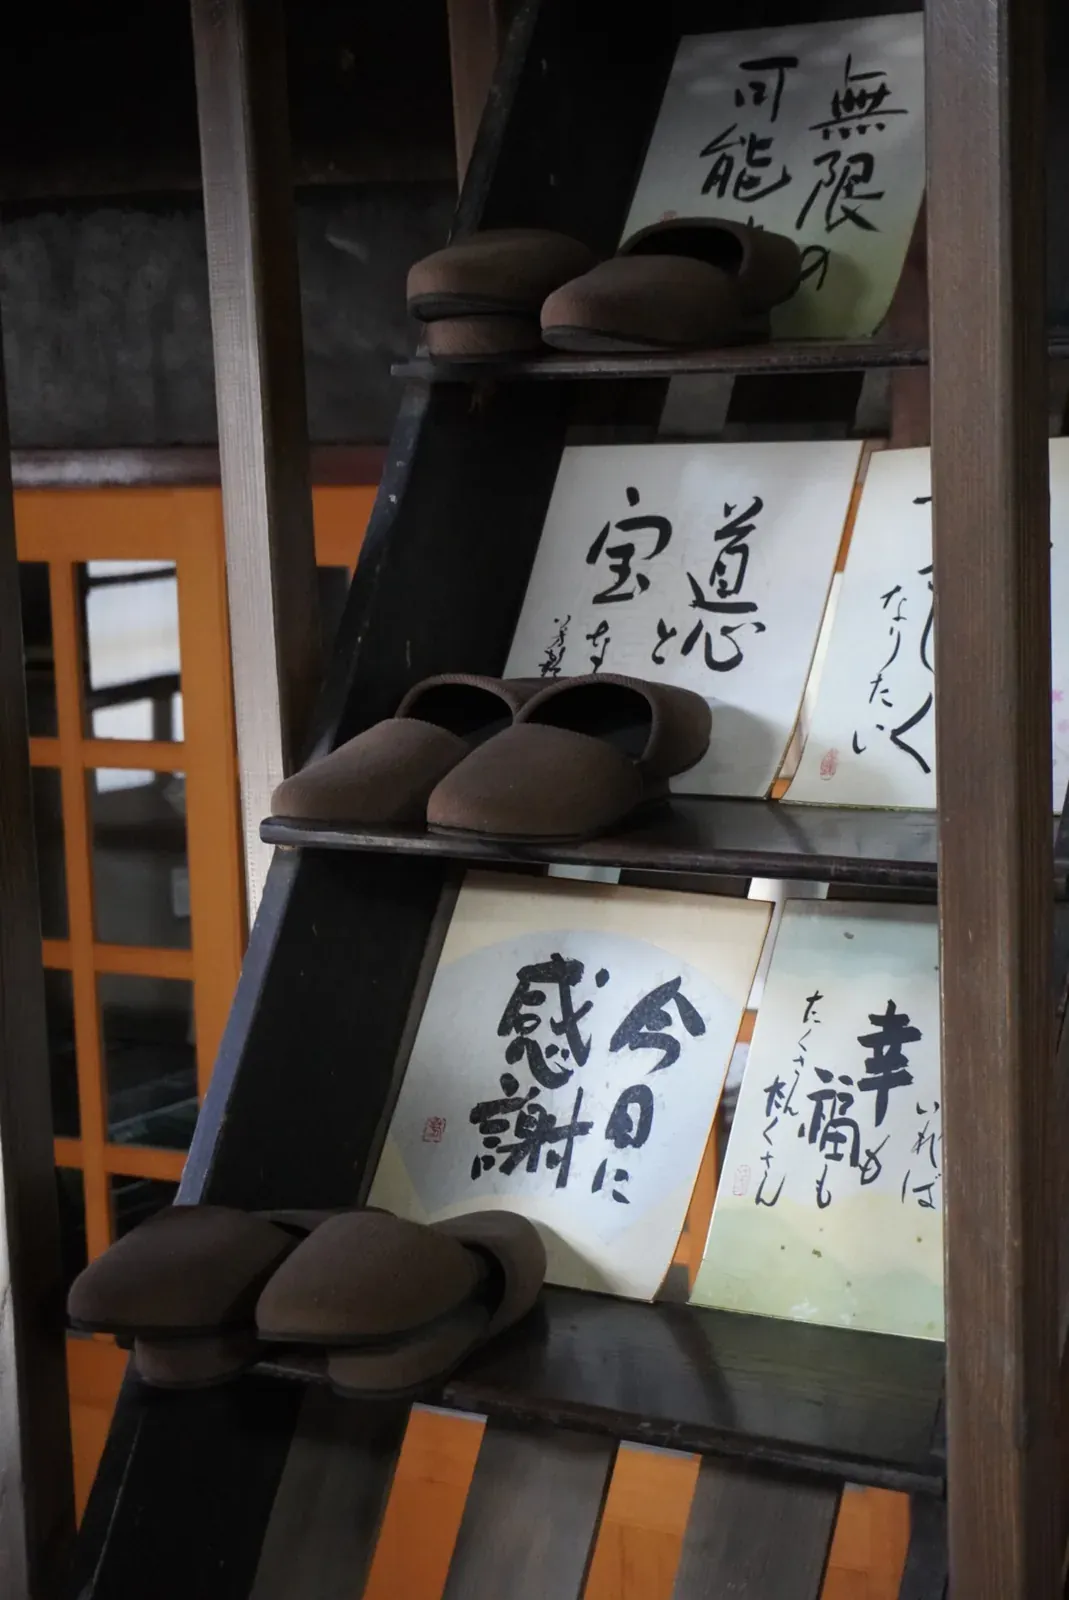 無限の
可能
道心と
宝な
しく
なりたい
今日に
感謝
いれば
幸も
福も
たくさん
たくさん